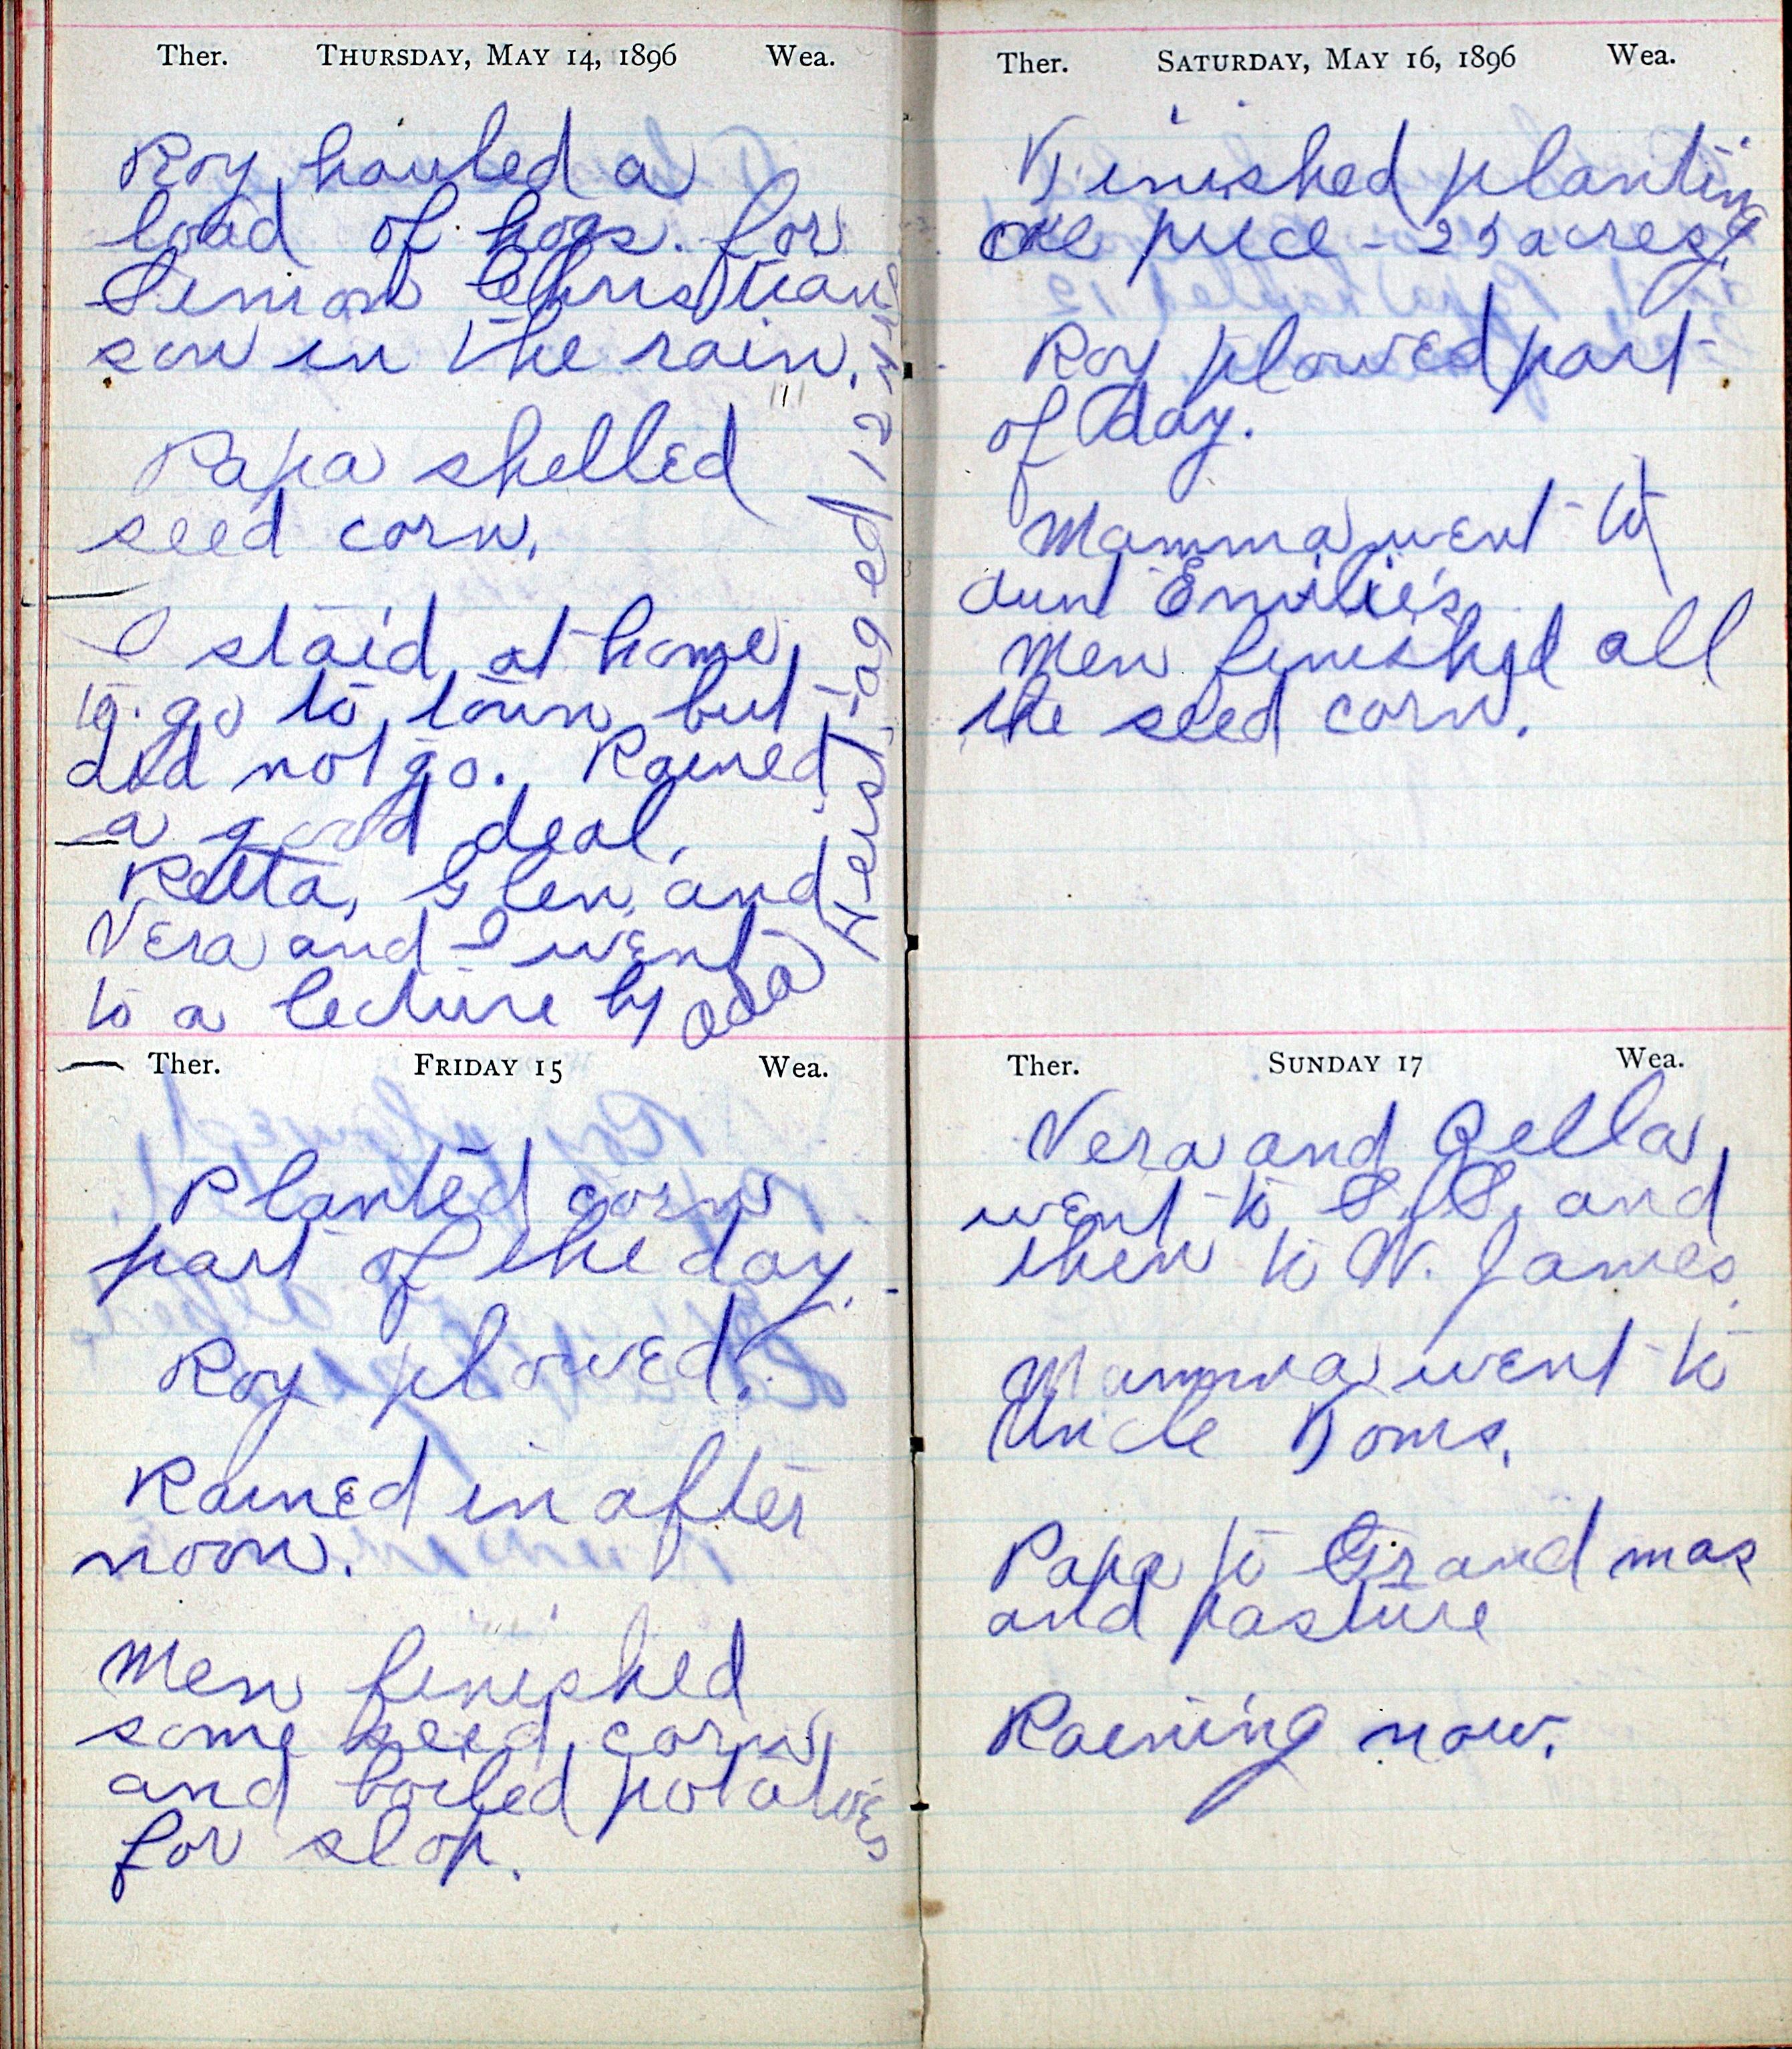 Ther. THURSDAY, MAY 14, 1896 Wea.
Roy hauled a
load of hogs. for
Simon Christian
son in the rain.
Papa shelled
seed corn.
I staid at home
to go to town but
did not go. Rained
a good deal.
Retta, Glen, and
Vera and I went
to a lecture by Oda
Herst, aged 12 yrs
Ther. FRIDAY 15 Wea.
Planted corn
part of the day.
Roy plowed.
Rained in after
noon.
Men finished
some seed corn
and boiled potatoes
for slop.
Ther. SATURDAY, MAY 16, 1896 Wea.
Finished planting
one piece - 25 acres.
Roy plowed part
of day.
Mamma went to
aunt Emilie's
Men finished all
the seed corn.
Ther. SUNDAY 17 Wea.
Vera and Qella
went to S.S. and
then to W. James.
Mamma went to
Uncle Toms.
Papa to Grand mas
and pasture
Raining now.